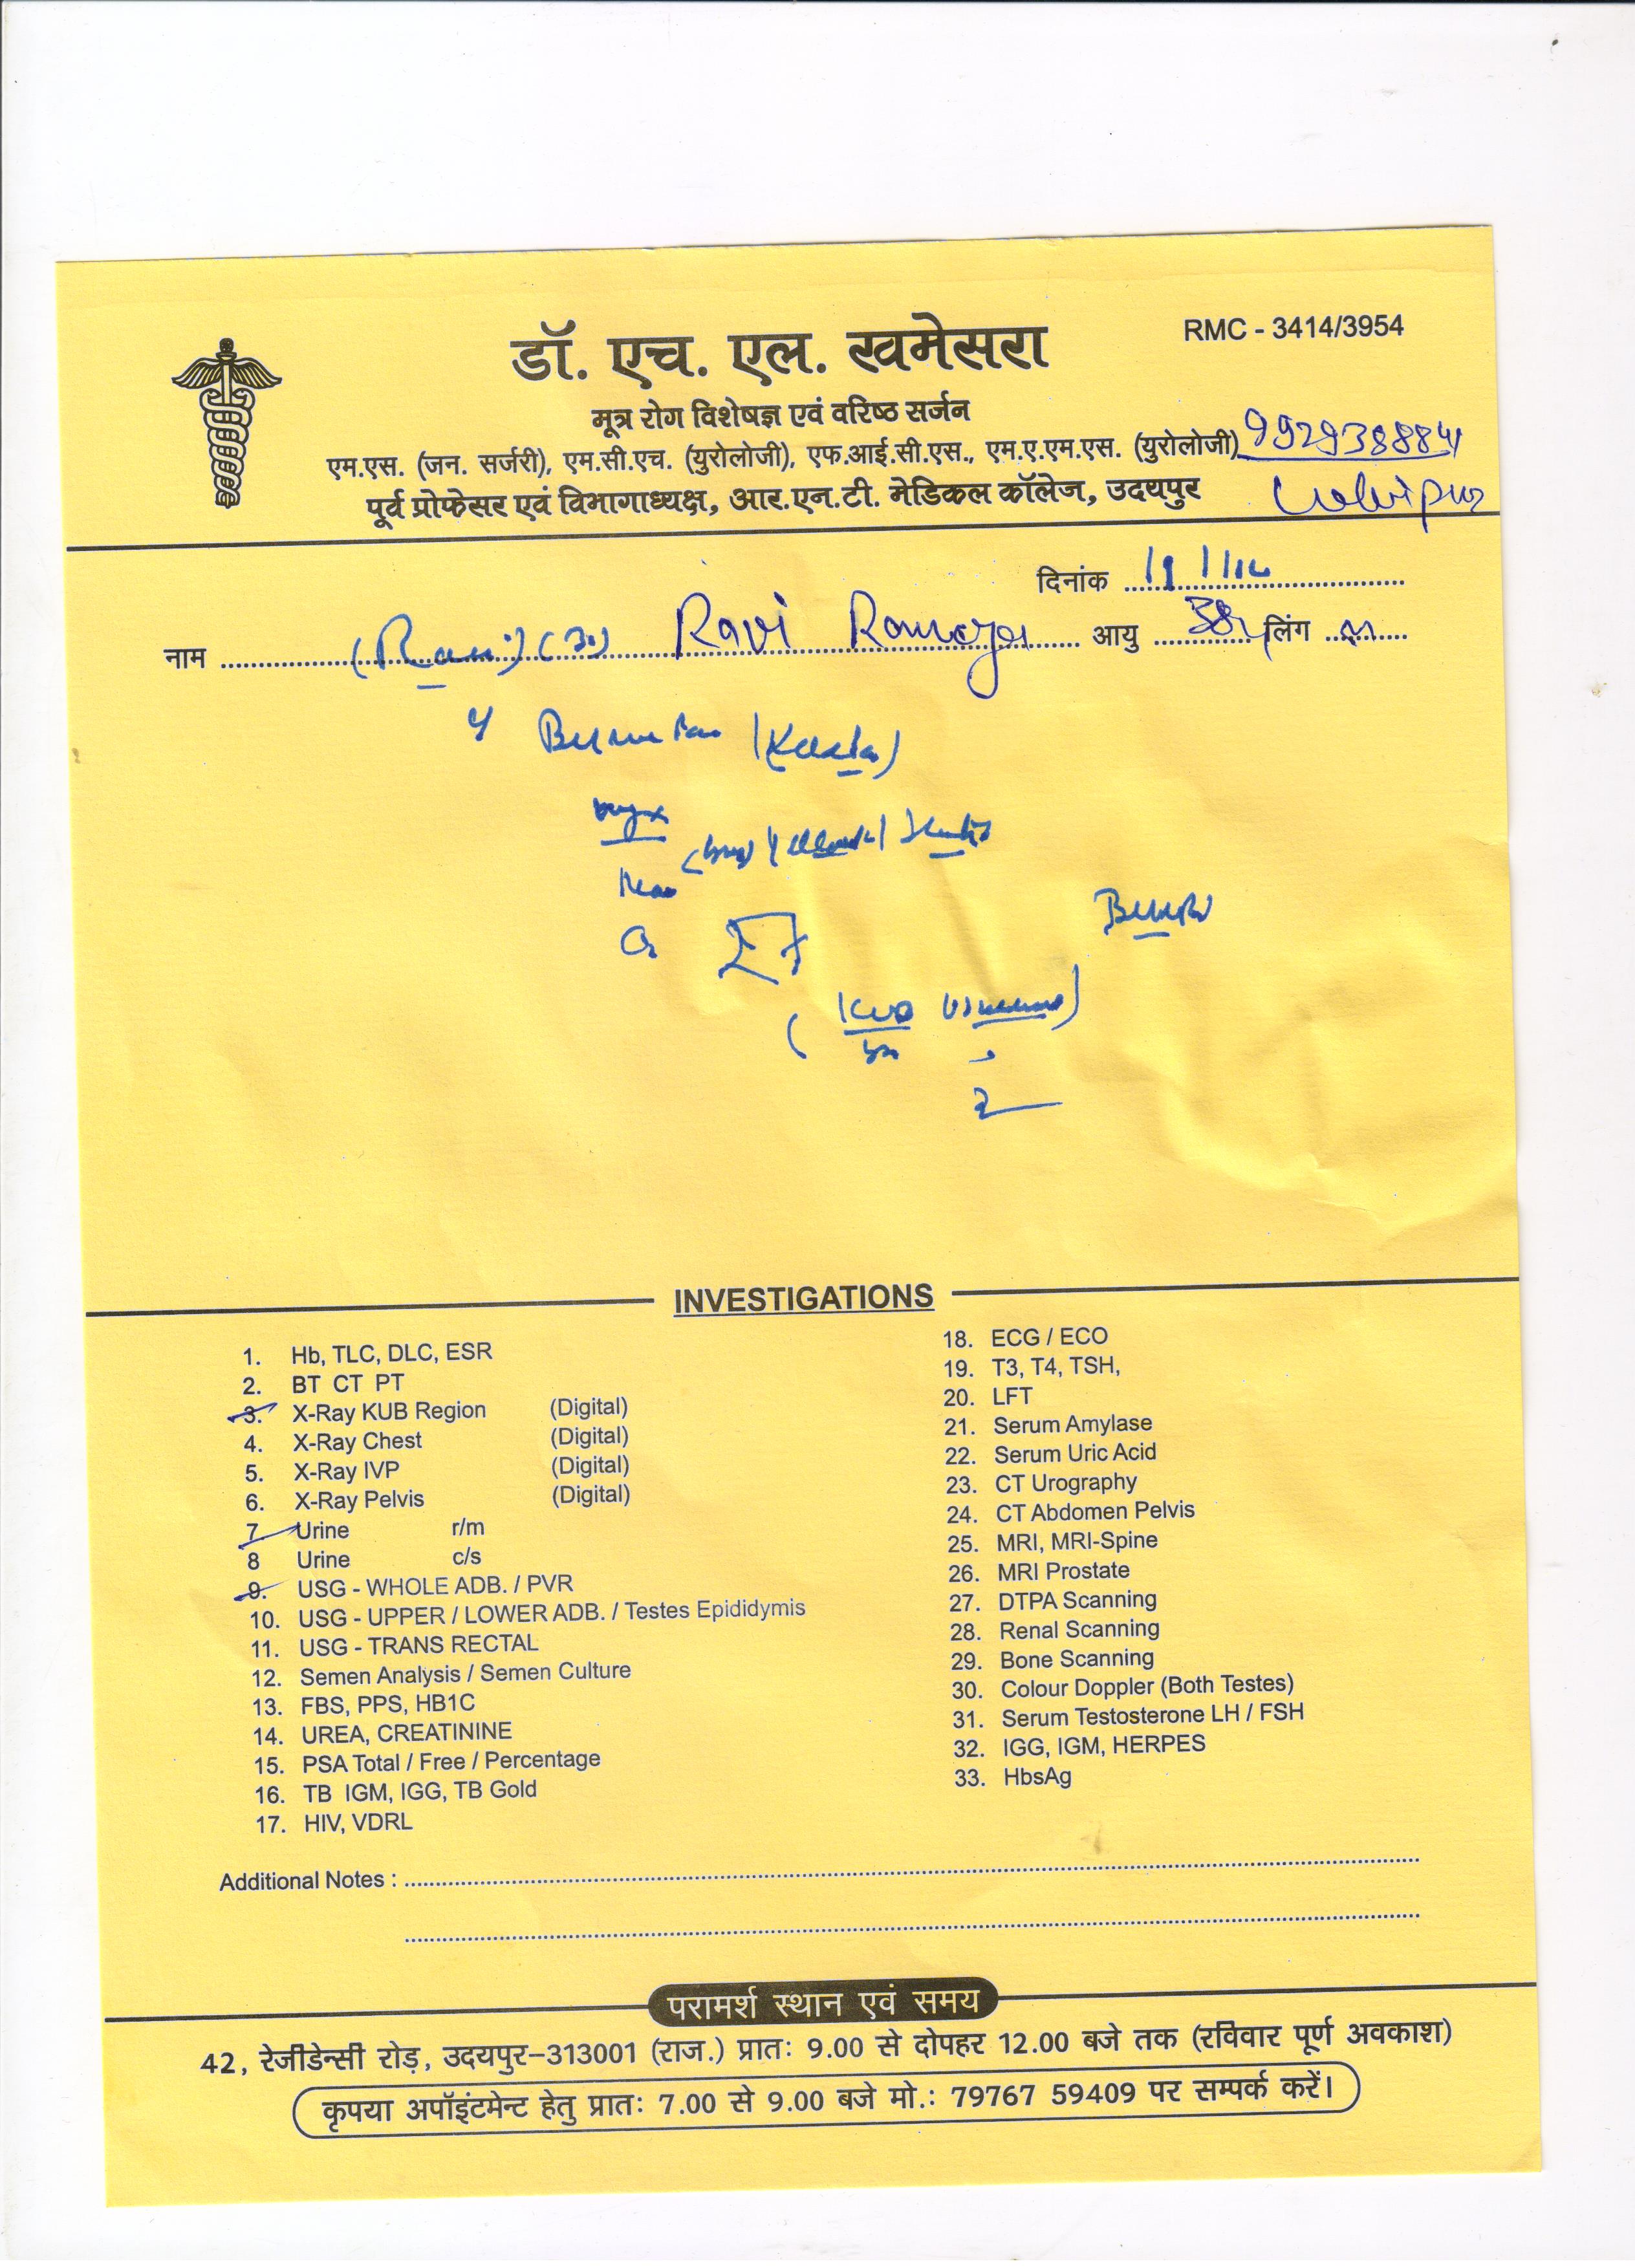 डॉ. एच. एल. खमेसरा
RMC - 3414/3954
मूत्र रोग विशेषज्ञ एवं वरिष्ठ सर्जन
एम.एस. (जन. सर्जरी), एम.सी.एच. (युरोलोजी), एफ.आई.सी.एस., एम.ए.एम.एस. (युरोलोजी)
पूर्व प्रोफेसर एवं विभागाध्यक्ष, आर.एन.टी. मेडिकल कॉलेज, उदयपुर
दिनांक
नाम Ravi आयु लिंग
INVESTIGATIONS
1. Hb, TLC, DLC, ESR
2. BT CT PT
3. X-Ray KUB Region (Digital)
4. X-Ray Chest (Digital)
5. X-Ray IVP (Digital)
6. X-Ray Pelvis (Digital)
7 Urine r/m
8 Urine c/s
9. USG - WHOLE ADB. / PVR
10. USG - UPPER / LOWER ADB. / Testes Epididymis
11. USG - TRANS RECTAL
12. Semen Analysis / Semen Culture
13. FBS, PPS, HB1C
14. UREA, CREATININE
15. PSA Total / Free / Percentage
16. TB IGM, IGG, TB Gold
17. HIV, VDRL
18. ECG / ECO
19. T3, T4, TSH,
20. LFT
21. Serum Amylase
22. Serum Uric Acid
23. CT Urography
24. CT Abdomen Pelvis
25. MRI, MRI-Spine
26. MRI Prostate
27. DTPA Scanning
28. Renal Scanning
29. Bone Scanning
30. Colour Doppler (Both Testes)
31. Serum Testosterone LH / FSH
32. IGG, IGM, HERPES
33. HbsAg
Additional Notes :
परामर्श स्थान एवं समय
42, रेजीडेन्सी रोड़, उदयपुर-313001 (राज.) प्रातः 9.00 से दोपहर 12.00 बजे तक (रविवार पूर्ण अवकाश)
कृपया अपॉइंटमेन्ट हेतु प्रातः 7.00 से 9.00 बजे मो.: 79767 59409 पर सम्पर्क करें।